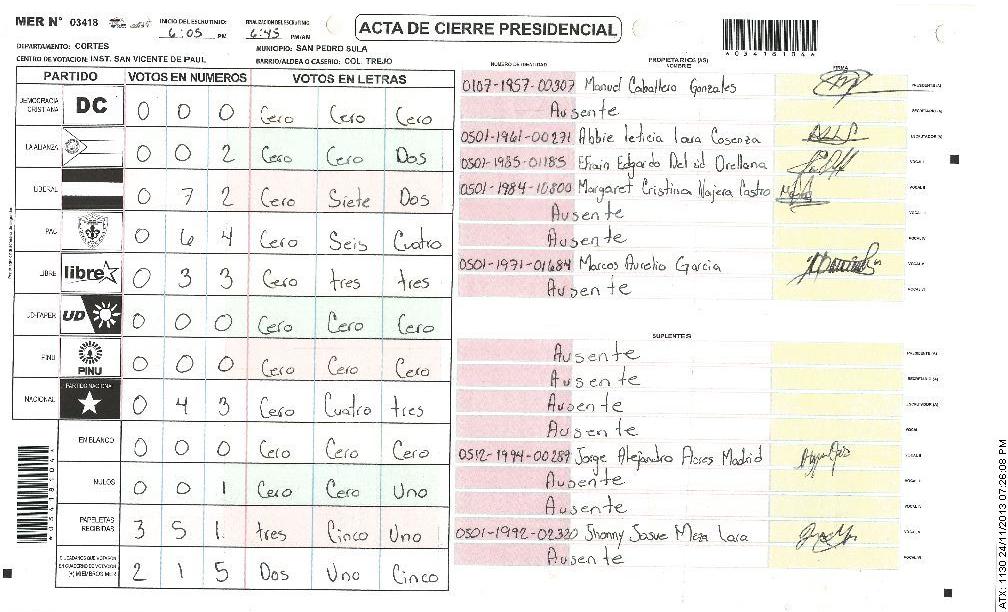 MER N° 03418
INICIO DEL ESCRUTINIO: 6:05 PM
FINALIZACION DEL ESCRUTINIO: 6:45 PM/AM
ACTA DE CIERRE PRESIDENCIAL
DEPARTAMENTO: CORTES
MUNICIPIO: SAN PEDRO SULA
CENTRO DE VOTACION: INST. SAN VICENTE DE PAUL
BARRIO/ALDEA O CASERIO: COL. TREJO
PARTIDO VOTOS EN NUMEROS VOTOS EN LETRAS
DEMOCRACIA CRISTIANA DC 0 0 0 Cero Cero Cero
LA ALIANZA 0 0 2 Cero Cero Dos
LIBERAL 0 7 2 Cero Siete Dos
PAC 0 6 4 Cero Seis Cuatro
LIBRE libre 0 3 3 Cero tres tres
UD-FAPER UD 0 0 0 Cero Cero Cero
PINU PINU 0 0 0 Cero Cero Cero
NACIONAL PARTIDO NACIONAL 0 4 3 Cero Cuatro tres
EN BLANCO 0 0 0 Cero Cero Cero
NULOS 0 0 1 Cero Cero Uno
PAPELETAS RECIBIDAS 3 5 1 tres Cinco Uno
CIUDADANOS QUE VOTARON EN CUADERNO DE VOTACION (+) MIEMBROS MER 2 1 5 Dos Uno Cinco
PROPIETARIOS (AS)
NUMERO DE IDENTIDAD NOMBRE FIRMA
0107-1957-00307 Manuel Caballero Gonzales PRESIDENTE (A)
Ausente SECRETARIO (A)
0501-1961-00271 Abbie leticia Lara Cosenza ESCRUTADOR (A)
0501-1985-01185 Efrain Edgardo Del cid Orellana VOCAL I
0501-1984-10800 Margaret Cristina Najera Castro VOCAL II
Ausente
Ausente VOCAL IV
0501-1971-01684 Marcos Aurelio Garcia VOCAL V
Ausente VOCAL VI
SUPLENTES
Ausente PRESIDENTE (A)
Ausente SECRETARIO (A)
Ausente ESCRUTADOR (A)
Ausente
0512-1994-00289 Jorge Alejandro Flores Madrid VOCAL II
Ausente
Ausente
0501-1992-02320 Jhonny Josue Meza Lara VOCAL V
Ausente VOCAL VI
ATX: 1130 24/11/2013 07:26:08 PM